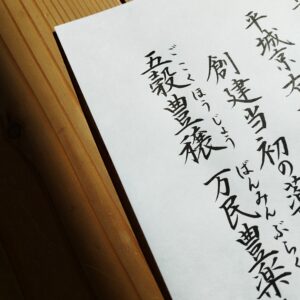 平城京
創建当初の
ごこくほうじょう ばんみんぶらく
五穀豊穣 万民豊楽